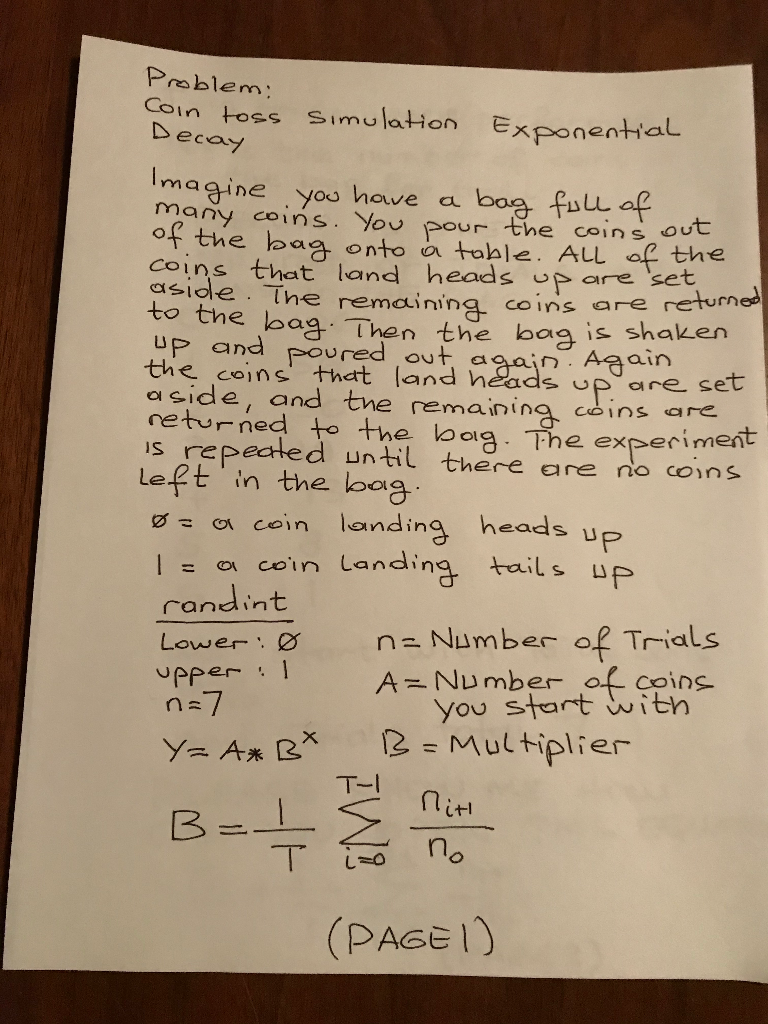 Problem:
Coin toss Simulation Exponential
Decay
Imagine you have a bag full of
many coins. You pour the coins out
of the bag onto a table. All of the
coins that land heads up are set
aside. The remaining coins are returned
to the bag. Then the bag is shaken
up and poured out again. Again
the coins that land heads up are set
aside, and the remaining coins are
returned to the bag. The experiment
is repeated until there are no coins
Left in the bag.
0 = a coin landing heads up
1 = a coin Landing tails up
randint
Lower: 0 n = Number of Trials
upper: 1 A = Number of coins
n=7 you start with
Y = A * B^x B = Multiplier
B = 1/T ∑_{i=0}^{T-1} n_{i+1}/n_0
(PAGE 1)